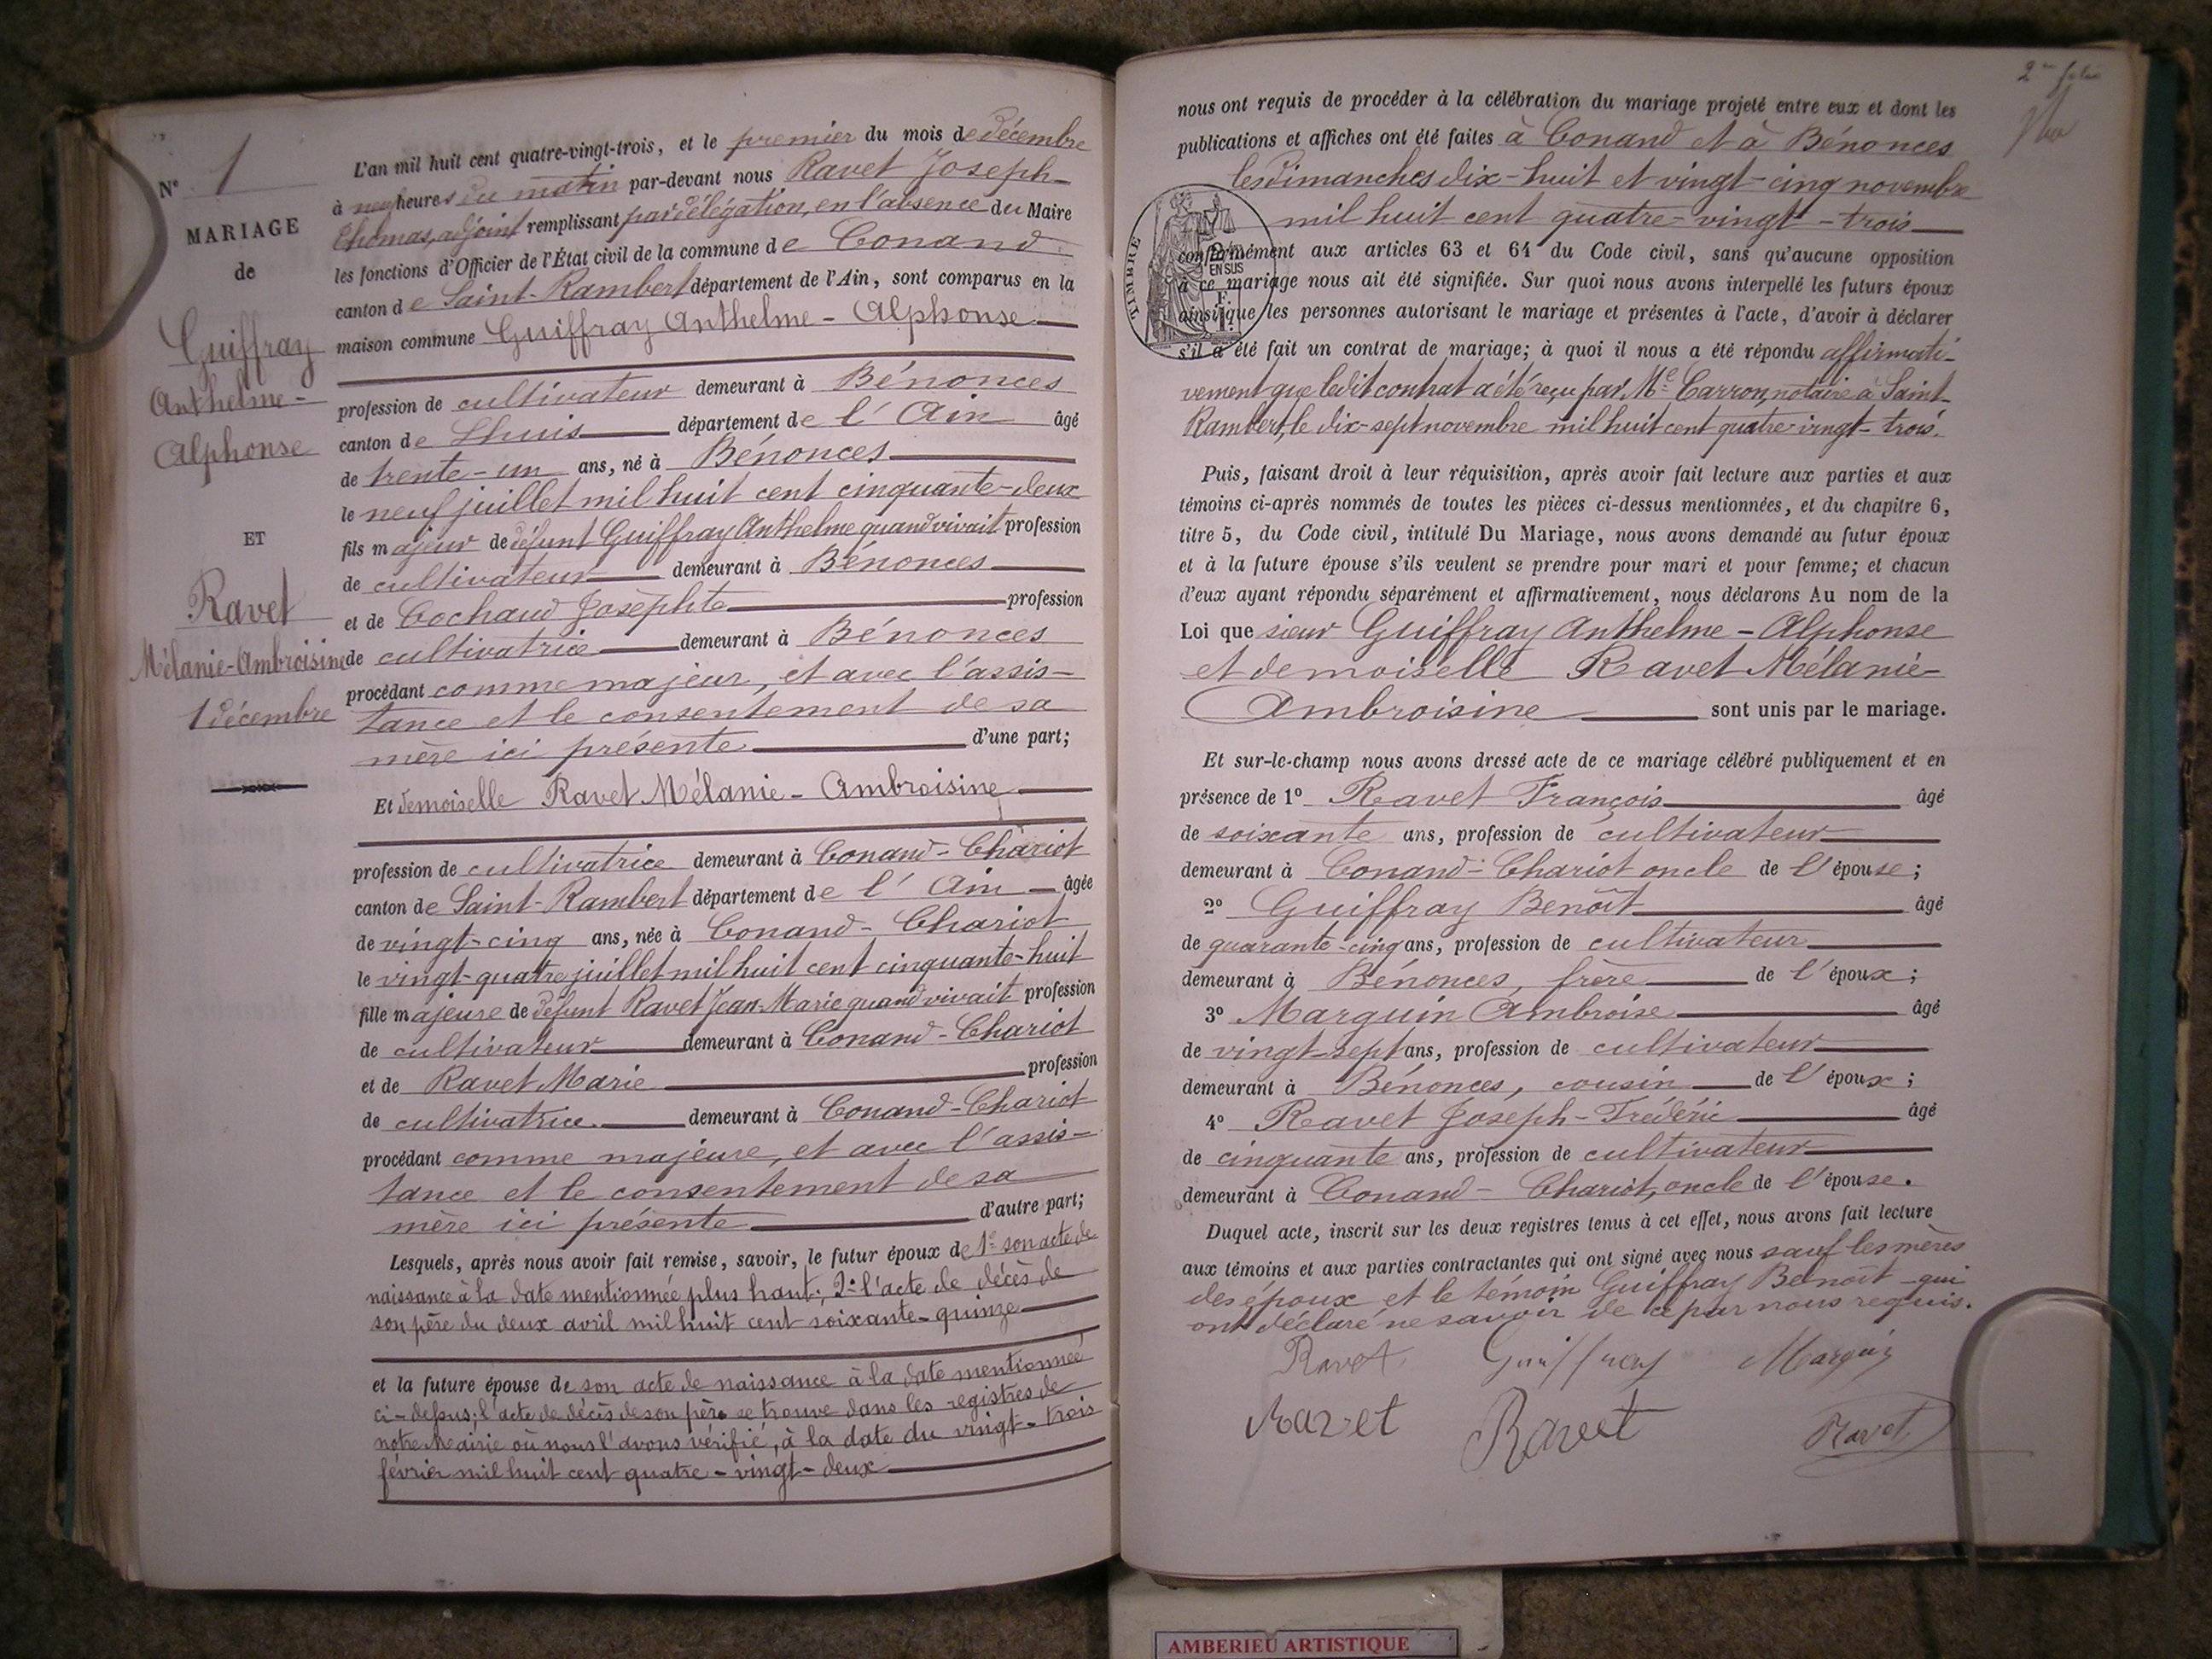 N° 1
MARIAGE
de
Guiffray
Anthelme-
Alphonse
ET
Ravet
Mélanie-Ambroisine
1 décembre
L'an mil huit cent quatre-vingt-trois, et le premier du mois de décembre
à neuf heures du matin par-devant nous Ravet Joseph-
Thomas, adjoint remplissant par délégation, en l'absence du Maire
les fonctions d'Officier de l'État civil de la commune de Conand
canton de Saint-Rambert département de l'Ain, sont comparus en la
maison commune Guiffray Anthelme-Alphonse
profession de cultivateur demeurant à Bénonces
canton de Lhuis département de l'Ain âgé
de trente-un ans, né à Bénonces
le neuf juillet mil huit cent cinquante-deux
fils majeur de défunt Guiffray Anthelme quand vivait profession
de cultivateur demeurant à Bénonces
et de Cochaud Josephte profession
de cultivatrice demeurant à Bénonces
procédant comme majeur, et avec l'assis-
tance et le consentement de sa
mère ici présente d'une part;
Et demoiselle Ravet Mélanie-Ambroisine
profession de cultivatrice demeurant à Conand-Chariot
canton de Saint-Rambert département de l'Ain âgée
de vingt-cinq ans, née à Conand-Chariot
le vingt-quatre juillet mil huit cent cinquante-huit
fille majeure de défunt Ravet Jean-Marie quand vivait profession
de cultivateur demeurant à Conand-Chariot
et de Ravet Marie profession
de cultivatrice demeurant à Conand-Chariot
procédant comme majeure, et avec l'assis-
tance et le consentement de sa
mère ici présente d'autre part;
Lesquels, après nous avoir fait remise, savoir, le futur époux de 1° son acte de
naissance à la date mentionnée plus haut; 2° l'acte de décès de
son père du deux avril mil huit cent soixante-quinze
et la future épouse de son acte de naissance à la date mentionnée
ci-dessus; l'acte de décès de son père se trouve dans les registres de
notre Mairie où nous l'avons vérifié, à la date du vingt-trois
février mil huit cent quatre-vingt-deux
2me folio
nous ont requis de procéder à la célébration du mariage projeté entre eux et dont les
publications et affiches ont été faites à Conand et à Bénonces
les dimanches dix-huit et vingt-cinq novembre
mil huit cent quatre-vingt-trois
TIMBRE
EN SUS
conformément aux articles 63 et 64 du Code civil, sans qu'aucune opposition
à ce mariage nous ait été signifiée. Sur quoi nous avons interpellé les futurs époux
ainsi que les personnes autorisant le mariage et présentes à l'acte, d'avoir à déclarer
s'il a été fait un contrat de mariage; à quoi il nous a été répondu affirmati-
vement que ledit contrat a été reçu par Me Carron, notaire à Saint-
Rambert, le dix-sept novembre mil huit cent quatre-vingt-trois.
Puis, faisant droit à leur réquisition, après avoir fait lecture aux parties et aux
témoins ci-après nommés de toutes les pièces ci-dessus mentionnées, et du chapitre 6,
titre 5, du Code civil, intitulé Du Mariage, nous avons demandé au futur époux
et à la future épouse s'ils veulent se prendre pour mari et pour femme; et chacun
d'eux ayant répondu séparément et affirmativement, nous déclarons Au nom de la
Loi que sieur Guiffray Anthelme-Alphonse
et demoiselle Ravet Mélanie-
Ambroisine sont unis par le mariage.
Et sur-le-champ nous avons dressé acte de ce mariage célébré publiquement et en
présence de 1° Ravet François âgé
de soixante ans, profession de cultivateur
demeurant à Conand-Chariot oncle de l'épouse;
2° Guiffray Benoît âgé
de quarante-cinq ans, profession de cultivateur
demeurant à Bénonces, frère de l'époux;
3° Marguin Ambroise âgé
de vingt-sept ans, profession de cultivateur
demeurant à Bénonces, cousin de l'époux;
4° Ravet Joseph-Frédéric âgé
de cinquante ans, profession de cultivateur
demeurant à Conand-Chariot, oncle de l'épouse.
Duquel acte, inscrit sur les deux registres tenus à cet effet, nous avons fait lecture
aux témoins et aux parties contractantes qui ont signé avec nous sauf les mères
des époux et le témoin Guiffray Benoît qui
ont déclaré ne savoir de ce par nous requis.
Ravet Guiffray Marguin
Ravet Ravet Ravet
AMBERIEU ARTISTIQUE